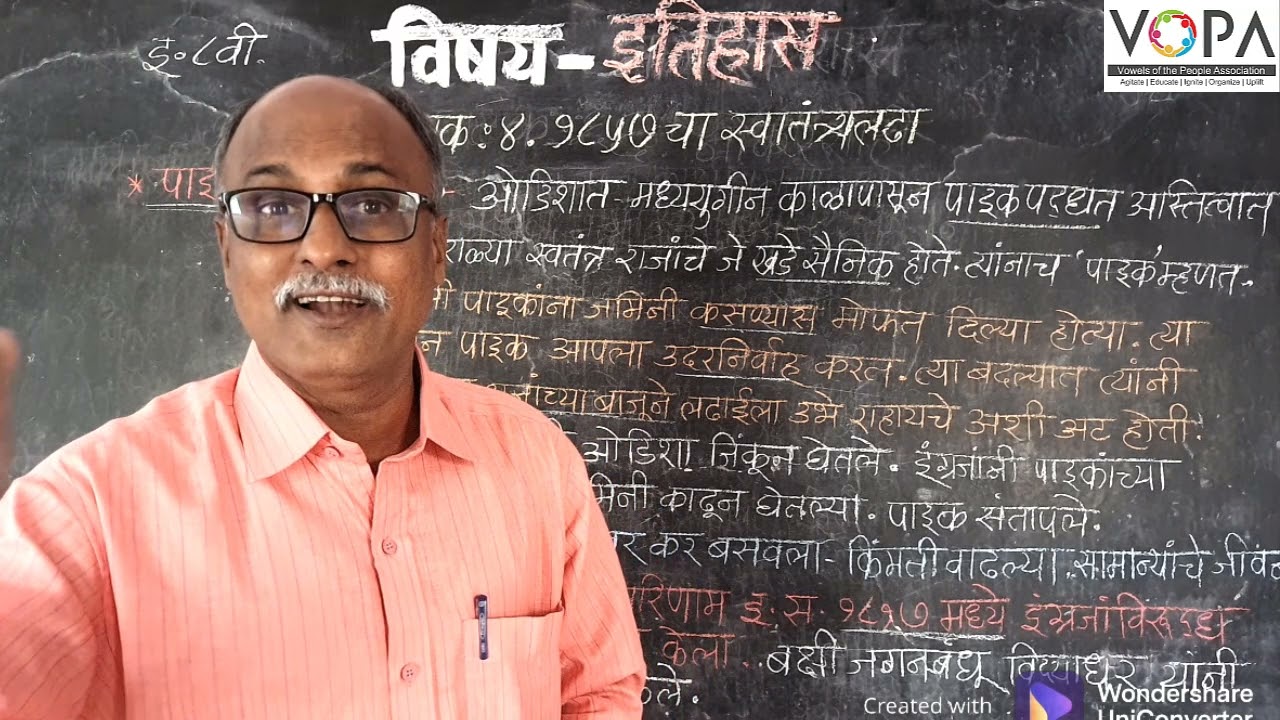 VOPA
Vowels of the People Association
Agitate | Educate | Ignite | Organize | Uplift
इ. ८वी.
विषय - इतिहास
क्र. : ४. १८५७ चा स्वातंत्र्यलढा
* पाइ - ओडिशात - मध्ययुगीन काळापासून पाइक पद्धत अस्तित्वात
स्वतंत्र राजांचे जे खडे सैनिक होते. त्यांनाच 'पाइक' म्हणत.
पाइकांना जमिनी कसण्यास मोफत दिल्या होत्या. त्या
पाइक आपला उदरनिर्वाह करत. त्या बदल्यात त्यांनी
बाजूने लढाईला उभे राहायचे अशी अट होती.
ओडिशा जिंकून घेतले. इंग्रजांनी पाइकांच्या
काढून घेतल्या. पाइक संतापले.
कर बसवला - किंमती वाढल्या. सामान्यांचे जीवन
इ. स. १८१७ मध्ये इंग्रजांविरूद्ध
केला.. बक्षी जगनबंधू विद्याधर यांनी
केले.
Created with
Wondershare
UniConverter